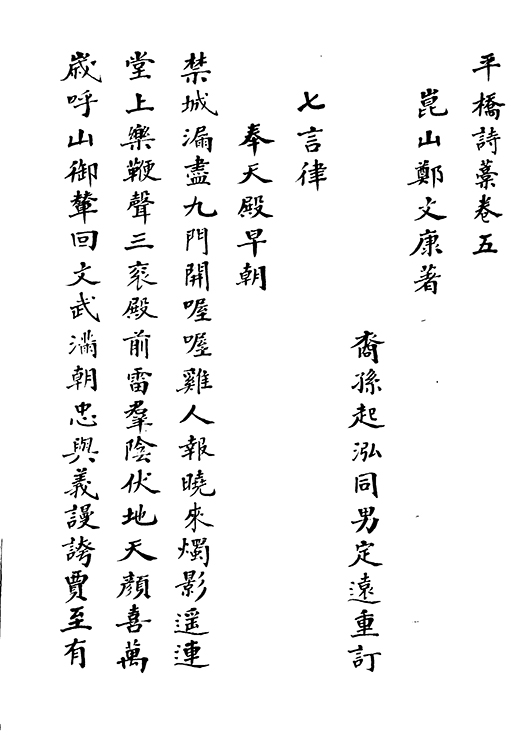 平橋詩藁卷五
崑山鄭文康著
裔孫起泓同男定遠重訂
七言律
奉天殿早朝
禁城漏盡九門開喔喔雞人報曉來燭影遥連
堂上樂鞭聲三袞殿前雷羣陰伏地天顔喜萬
嵗呼山御輦回文武滿朝忠與義謾誇賈至有